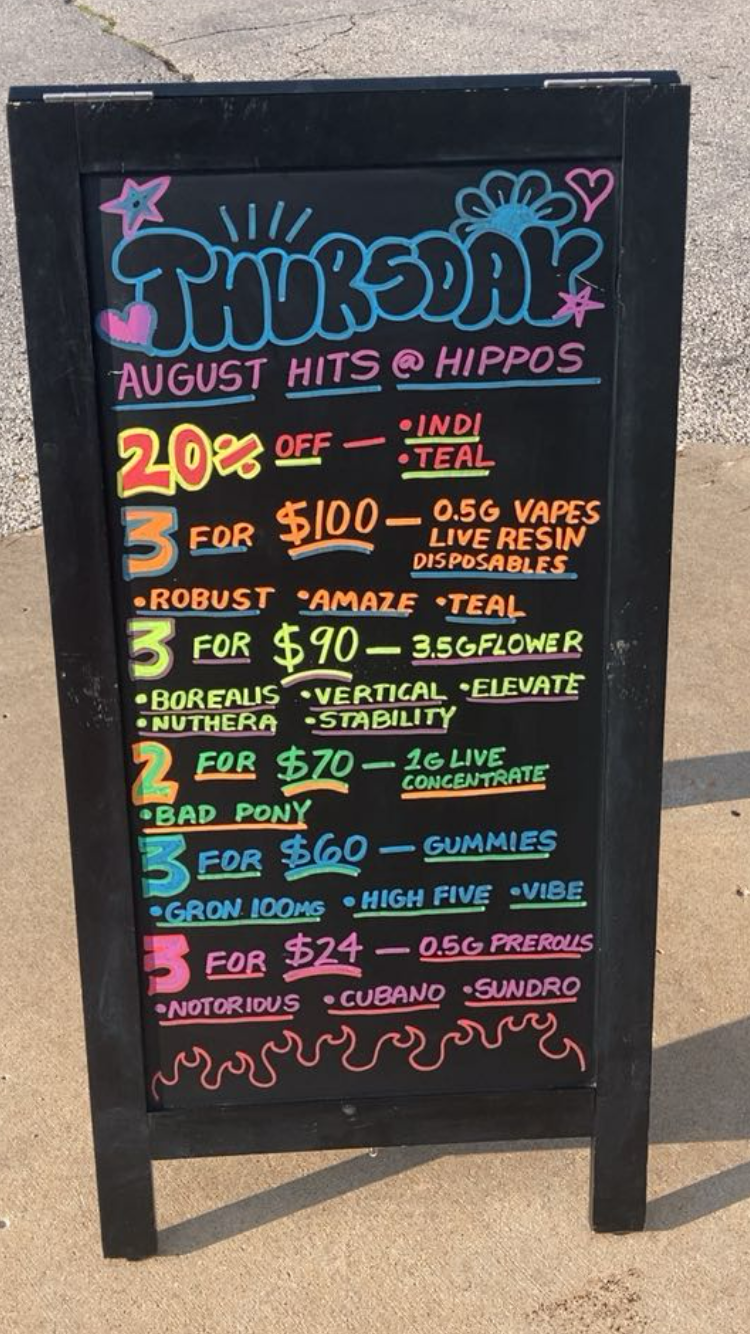 THURSDAY
AUGUST HITS @ HIPPOS
20% OFF — •INDI
•TEAL
3 FOR $100 — 0.5G VAPES
LIVE RESIN
DISPOSABLES
•ROBUST •AMAZE •TEAL
3 FOR $90 — 3.5G FLOWER
•BOREALIS •VERTICAL •ELEVATE
•NUTHERA •STABILITY
2 FOR $70 — 1G LIVE
CONCENTRATE
•BAD PONY
3 FOR $60 — GUMMIES
•GRON 100MG •HIGH FIVE •VIBE
3 FOR $24 — 0.5G PREROLLS
•NOTORIOUS •CUBANO •SUNDRO